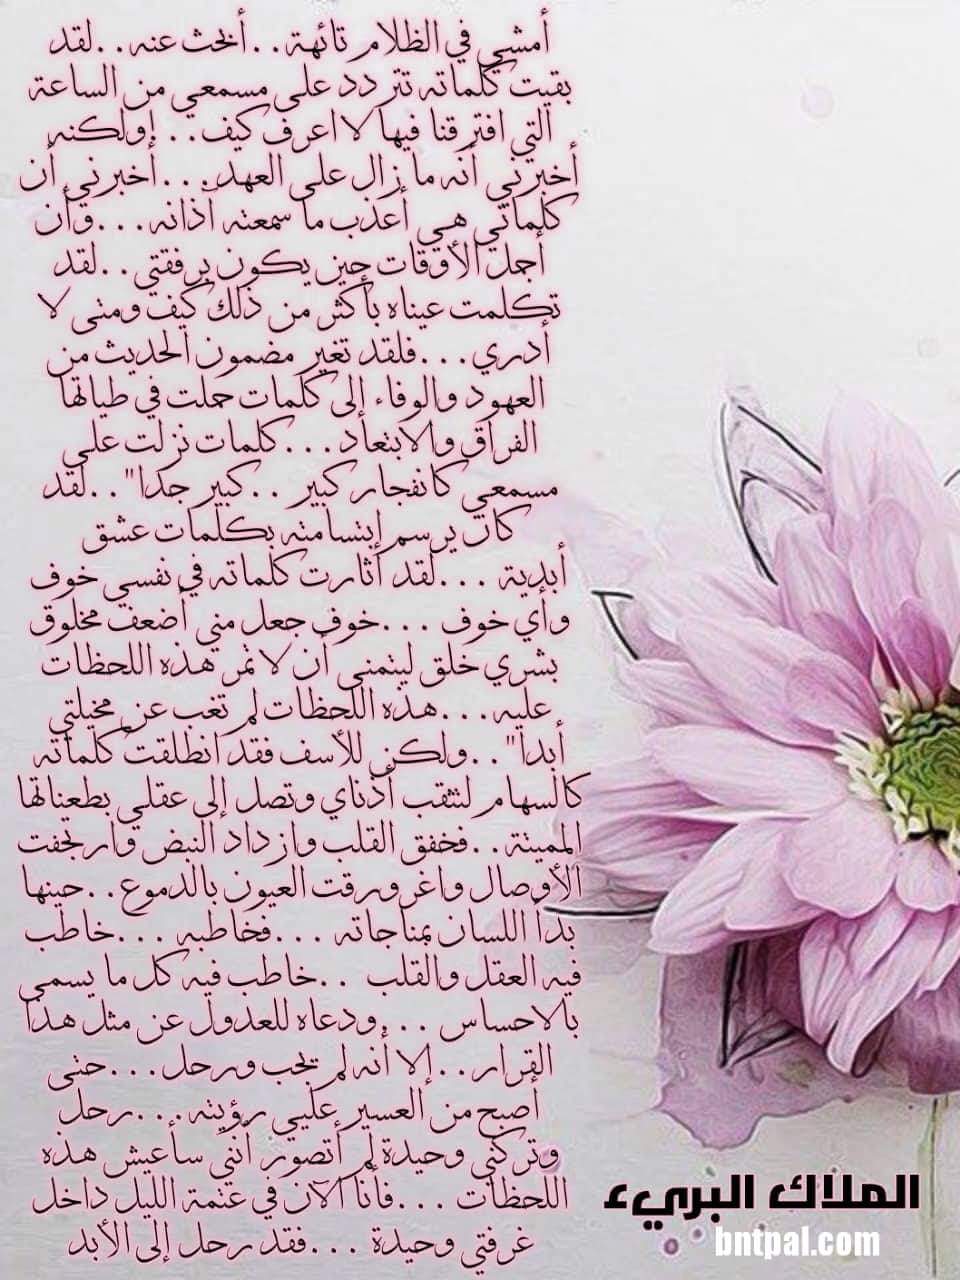 أمشي في الظلام تائهة..أبحث عنه..لقد
بقيت كلماته تتردد على مسمعي من الساعة
التي افترقنا فيها لا اعرف كيف..!ولكنه
أخبرني أنه ما زال على العهد...أخبرني أن
كلماتي هي أعذب ما سمعته آذانه...وأن
أجمل الأوقات حين يكون برفقتي..لقد
تكلمت عيناه بأكثر من ذلك كيف ومتى لا
أدري...فلقد تغير مضمون الحديث من
العهود والوفاء إلى كلمات حملت في طياتها
الفراق والابتعاد...كلمات نزلت على
مسمعي كانفجار كبير ..كبير جدا"..لقد
كان يرسم إبتسامته بكلمات عشق
أبدية ...لقد أثارت كلماته في نفسي خوف
وأي خوف ...خوف جعل مني أضعف مخلوق
بشري خلق ليتمنى أن لا تمر هذه اللحظات
عليه...هذه اللحظات لم تغب عن مخيلتي
أبدا"..ولكن للأسف فقد انطلقت كلماته
كالسهام لتثقب أذناي وتصل إلى عقلي بطعناتها
المميتة..فخفق القلب وازداد النبض وارتجفت
الأوصال واغرورقت العيون بالدموع..حينها
بدأ اللسان بمناجاته ...فخاطبه ...خاطب
فيه العقل والقلب ..خاطب فيه كل ما يسمى
بالاحساس ...ودعاه للعدول عن مثل هذا
القرار..إلا أنه لم يجب ورحل...حتى
أصبح من العسير عليي رؤيته...رحل
وتركني وحيدة لم أتصور أنني سأعيش هذه
اللحظات ...فأنا الآن في عتمة الليل داخل
غرفتي وحيدة ...فقد رحل إلى الأبد
الملاك البريء
bntpal.com